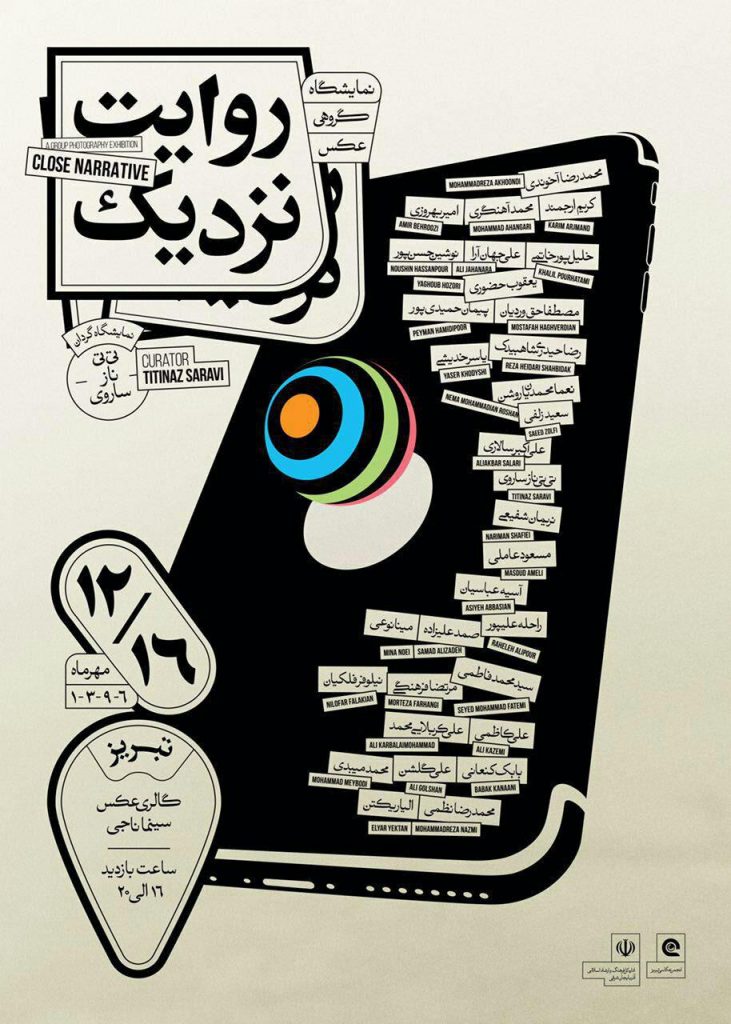 روایت
نزدیک
A GROUP PHOTOGRAPHY EXHIBITION
CLOSE NARRATIVE
نمایشگاه
گروهی
عکس
نمایشگاه گردان
تی تی
ناز
ساروی
CURATOR
TITINAZ SARAVI
محمدرضا آخوندی
MOHAMMADREZA AKHOONDI
کریم ارجمند محمد آهنگری امیر بهروزی
KARIM ARJMAND MOHAMMAD AHANGARI AMIR BEHROOZI
خلیل پورخاتمی علی جهان آرا نوشین حسن پور
KHALIL POURHATAMI ALI JAHANARA NOUSHIN HASSANPOUR
یعقوب حضوری
YAGHOUB HOZORI
مصطفا حق وردیان پیمان حمیدی پور
MOSTAFAH HAGHVERDIAN PEYMAN HAMIDIPOOR
رضا حیدری شاهبیدک یاسر خدیشی
REZA HEIDARI SHAHBIDAK YASER KHODYSHI
نعما محمدیان روشن
NEMA MOHAMMADIAN ROSHAN
سعید زلفی
SAEED ZOLFI
علی اکبر سالاری
ALIAKBAR SALARI
تی تی ناز ساروی
TITINAZ SARAVI
نریمان شفیعی
NARIMAN SHAFIEI
مسعود عاملی
MASOUD AMELI
آسیه عباسیان
ASIYEH ABBASIAN
راحله علیپور صمد علیزاده مینا نوعی
RAHELEH ALIPOUR SAMAD ALIZADEH MINA NOEI
سید محمد فاطمی مرتضا فرهنگی نیلوفر فلکیان
SEYED MOHAMMAD FATEMI MORTEZA FARHANGI NILOFAR FALAKIAN
علی کاظمی علی کربلایی محمد
ALI KAZEMI ALI KARBALAIMOHAMMAD
بابک کنعانی علی گلشن محمد میبدی
BABAK KANAANI ALI GOLSHAN MOHAMMAD MEYBODI
محمدرضا نظمی الیار یکتن
MOHAMMADREZA NAZMI ELYAR YEKTAN
۱۲/۱۶
مهرماه
۱-۳-۹-۶
تبریز
گالری عکس
سینما ناجی
ساعت بازدید
۱۶ الی ۲۰
انجمن عکاسی تبریز
اداره کل فرهنگ و ارشاد اسلامی
آذربایجان شرقی